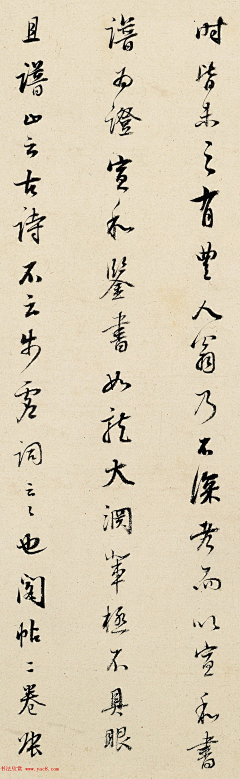 時皆未之有豐人翁乃不深考而以宣和書
譜為證宣和鑒書如龍大淵輩極不具眼
且譜止云古詩不云步虛詞云云也閣帖二卷張
书法欣赏 www.yac8.com